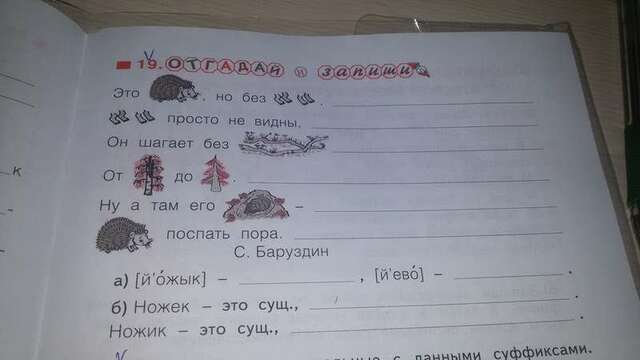 19. ОТГАДАЙ и запиши
Это , но без .
просто не видны,
Он шагает без
От до .
Ну а там его –
поспать пора.
С. Баруздин
а) [й'о́жык] – , [й'ево́] – .
б) Ножек – это сущ., .
Ножик – это сущ., .
с данными суффиксами.
к